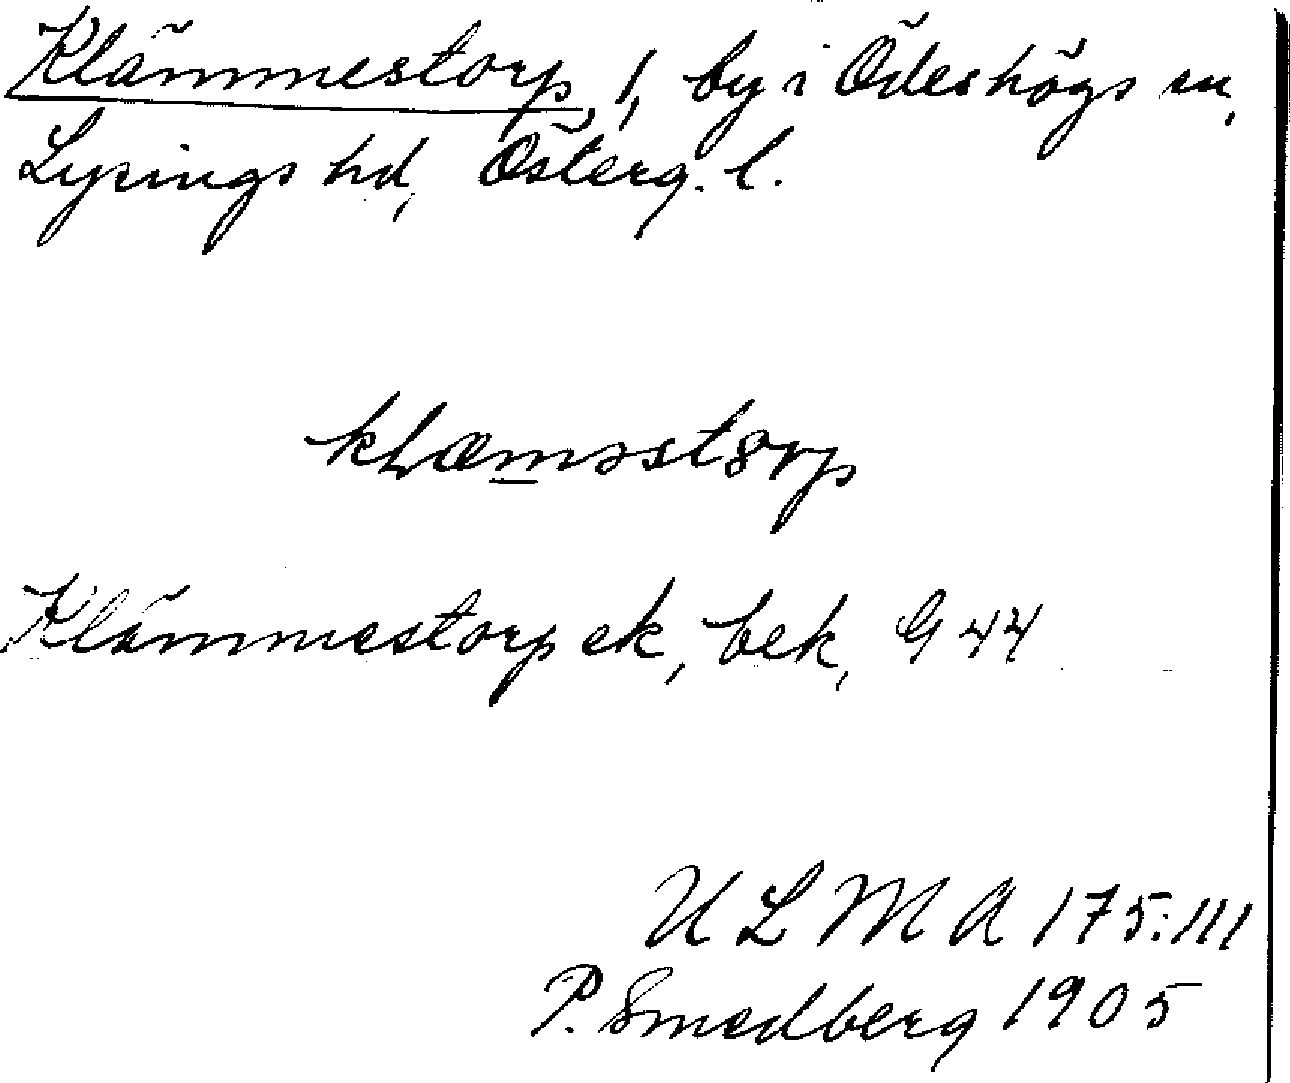 Klämmestorp 1, by i Ödeshögs sn,
Lysings hd, Österg. l.
kLæməstɵrp
Klämmestorp ek, bek, G 44
ULMA 175:111
P. Smedberg 1905